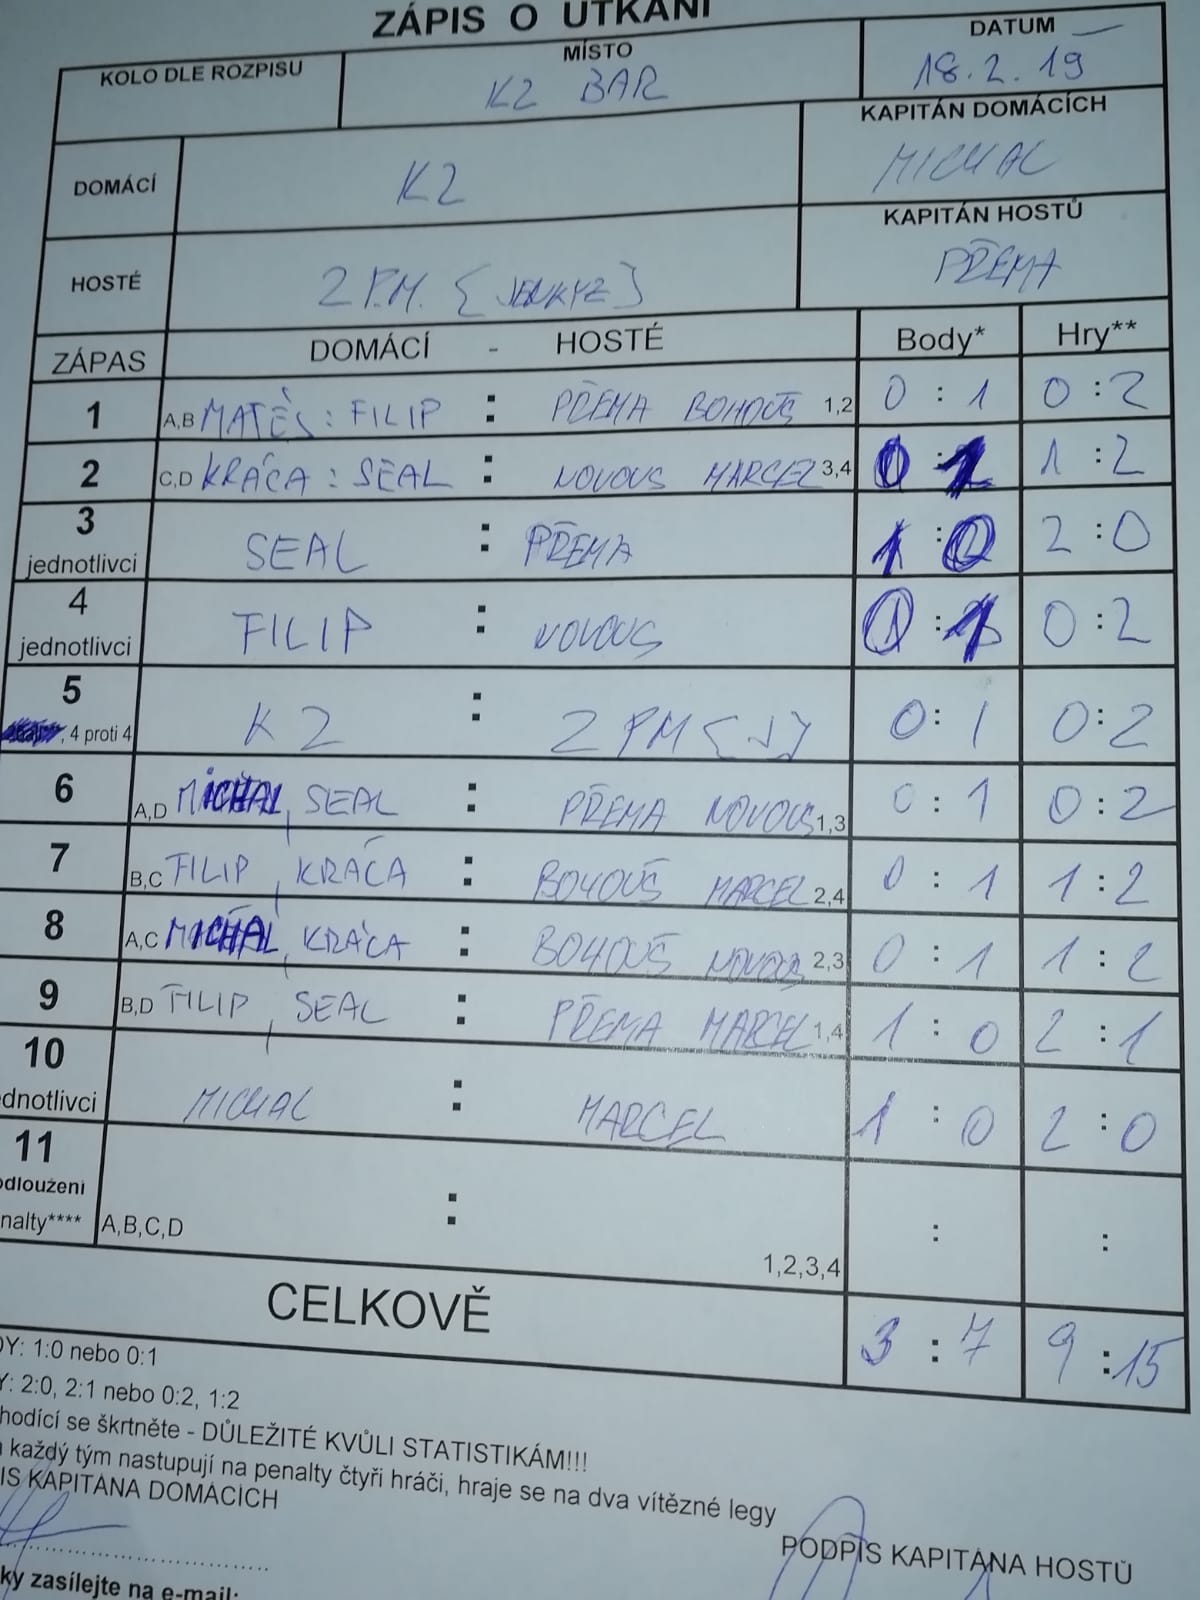 ZÁPIS O UTKÁNÍ
KOLO DLE ROZPISU
MÍSTO
K2 BAR
DATUM
18.2.19
KAPITÁN DOMÁCÍCH
MICHAL
DOMÁCÍ
K2
KAPITÁN HOSTŮ
PŘEMA
HOSTÉ
2 P.M. {JENKYZ}
ZÁPAS DOMÁCÍ - HOSTÉ Body* Hry**
1 A,B MATĚS : FILIP : PŘEMA BOHOUŠ 1,2 0 : 1 0 : 2
2 C,D KRÁCA : SEAL : NOVOUS MARCEL 3,4 0 : 1 1 : 2
3
jednotlivci SEAL : PŘEMA 1 : 0 2 : 0
4
jednotlivci FILIP : NOVOUS 0 : 1 0 : 2
5
, 4 proti 4 K2 : 2 PM {J} 0 : 1 0 : 2
6 A,D MICHAL, SEAL : PŘEMA NOVOUS 1,3 0 : 1 0 : 2
7 B,C FILIP, KRÁCA : BOHOUŠ MARCEL 2,4 0 : 1 1 : 2
8 A,C MICHAL, KRÁCA : BOHOUŠ NOVOUS 2,3 0 : 1 1 : 2
9 B,D FILIP, SEAL : PŘEMA MARCEL 1,4 1 : 0 2 : 1
10
ednotlivci MICHAL : MARCEL 1 : 0 2 : 0
11
odloužení
nalty**** A,B,C,D : 1,2,3,4 : :
CELKOVĚ 3 : 7 9 : 15
DY: 1:0 nebo 0:1
Y: 2:0, 2:1 nebo 0:2, 1:2
hodící se škrtněte - DŮLEŽITÉ KVŮLI STATISTIKÁM!!!
každý tým nastupují na penalty čtyři hráči, hraje se na dva vítězné legy
IS KAPITÁNA DOMÁCÍCH
PODPIS KAPITÁNA HOSTŮ
ky zasílejte na e-mail: